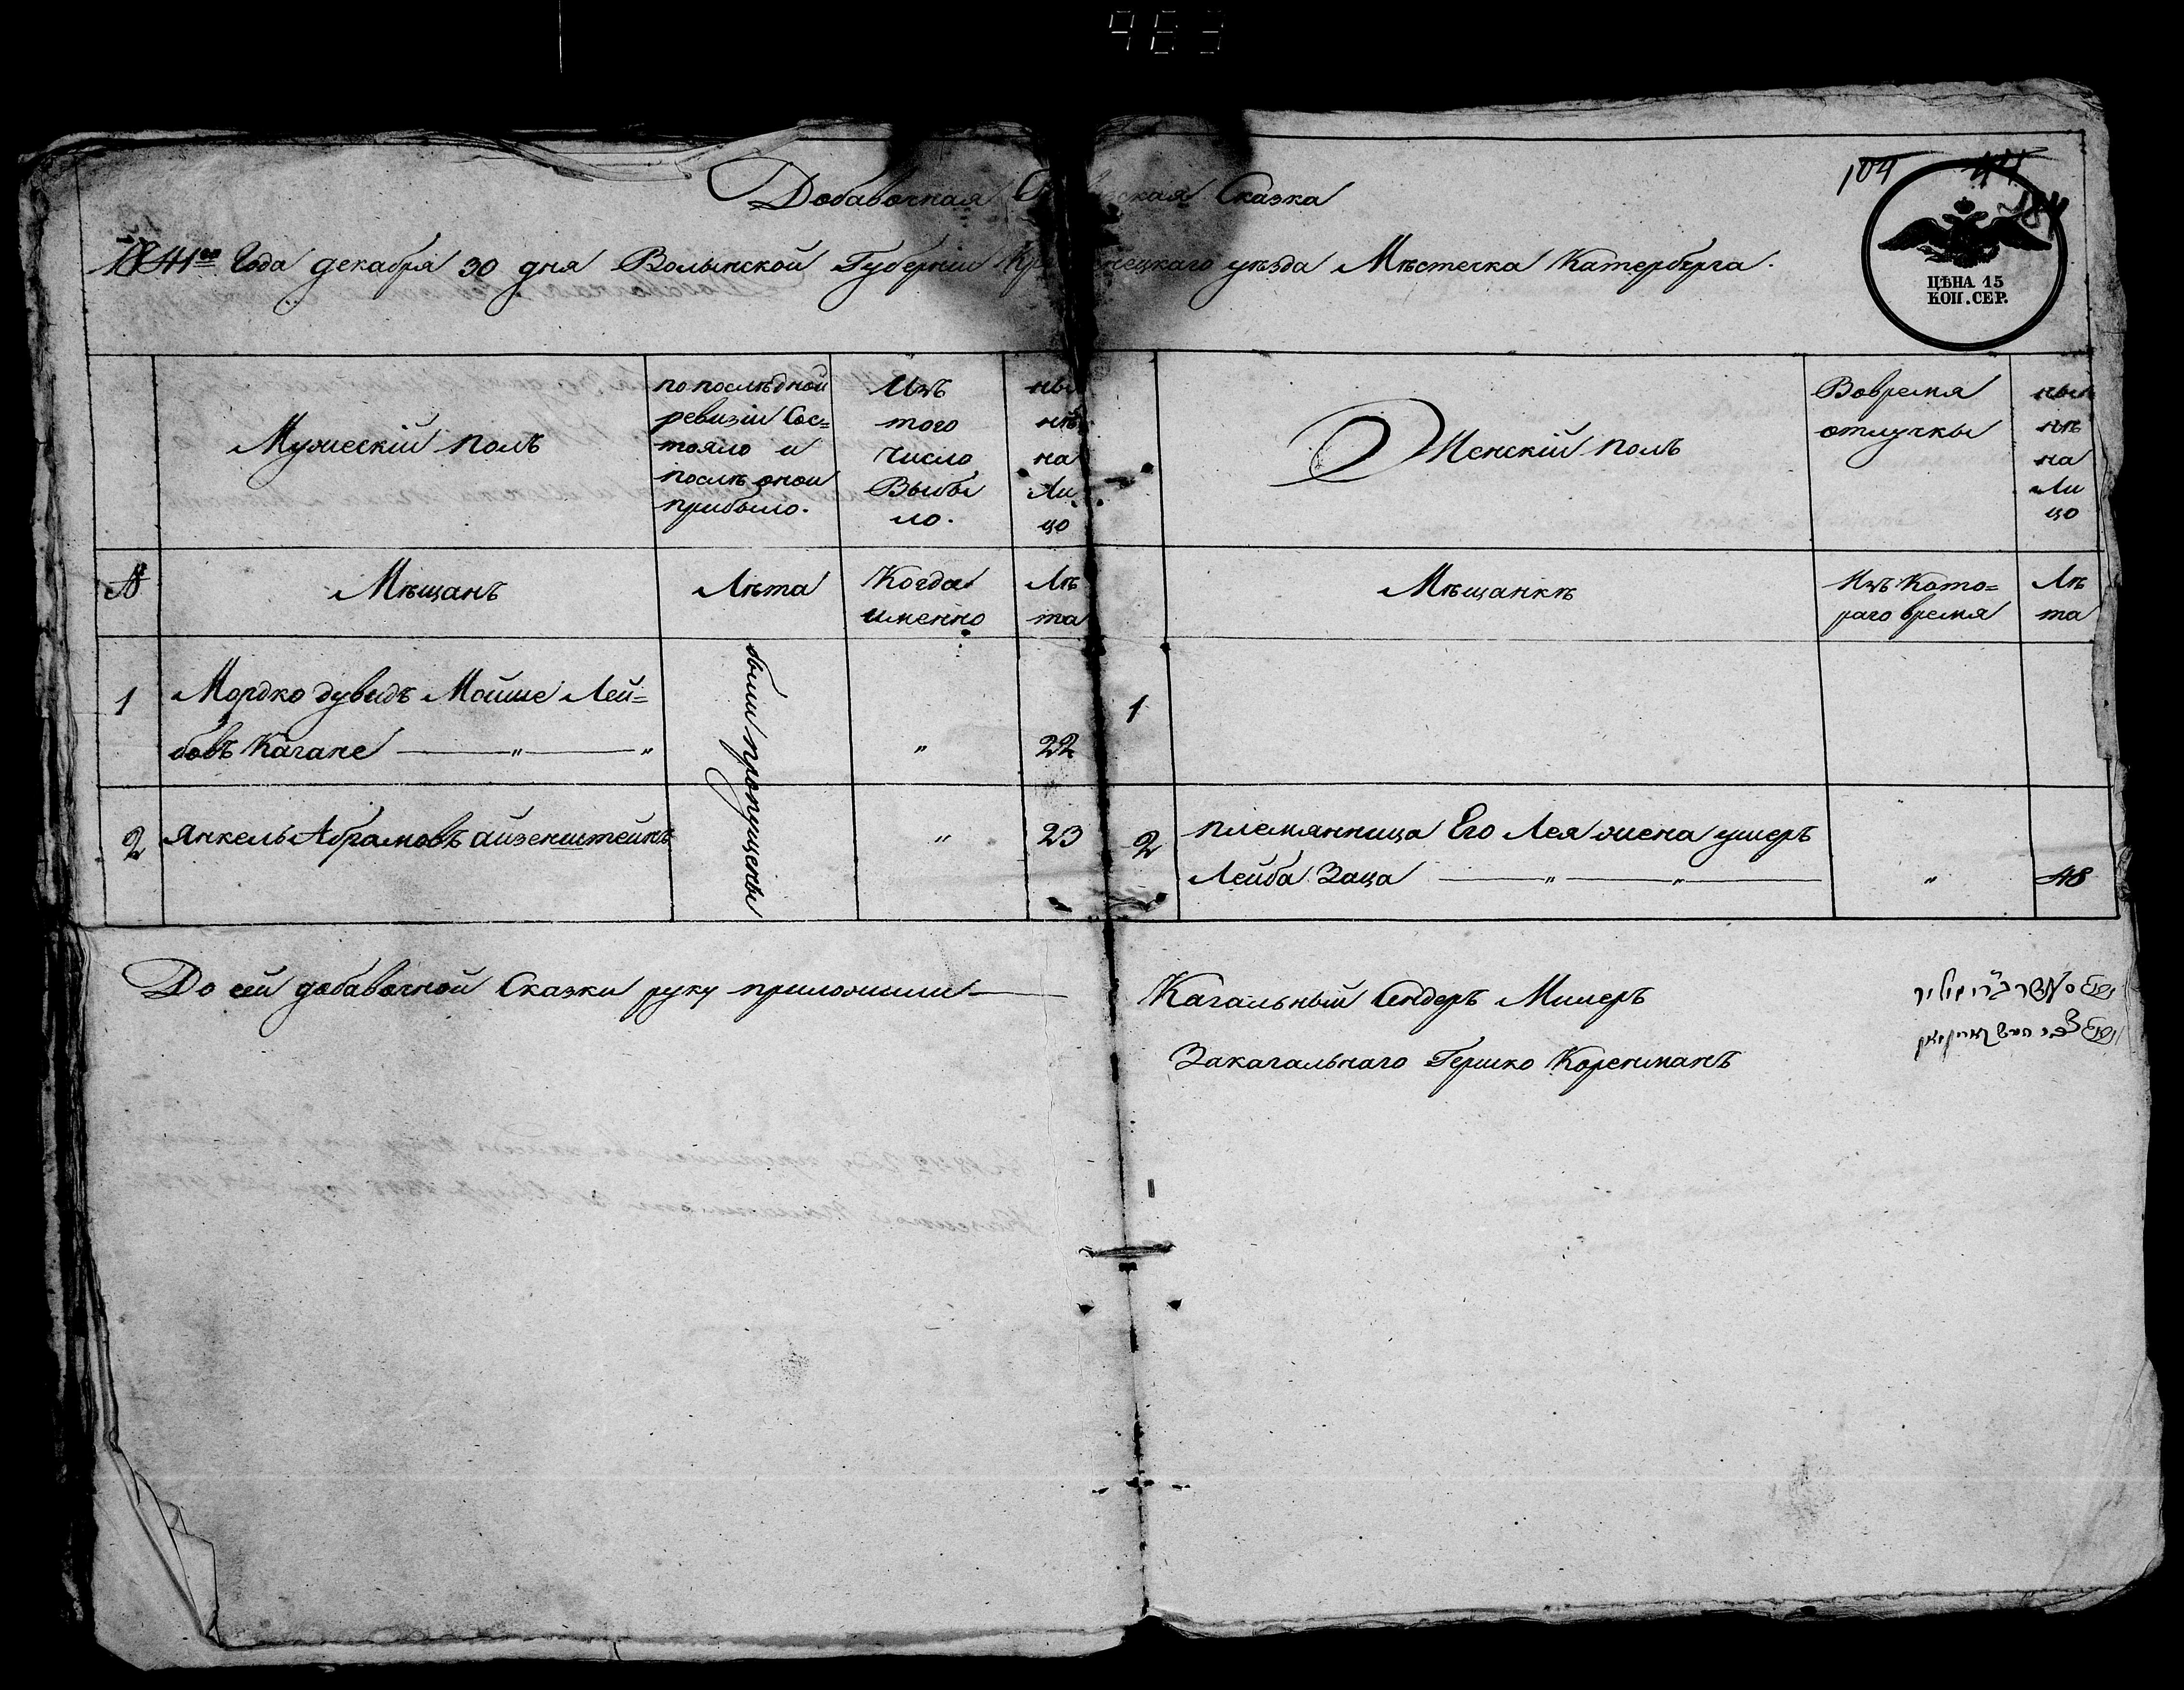 463
Добавочная Сказка
104
1841го Года декабря 30 дня Волынской Губерніи Кременецкаго уѣзда Мѣстечка Катербурга.
ЦѢНА 15
КОП. СЕР.
Мужескій полъ
по послѣдной
ревизіи Сос=
тояло и
послѣ оной
прибыло.
Изъ
того
числа
Выбы
ло.
ны
нѣ
на
Ли
цо
Женскій полъ
Вовремя
отлучки
ны
нѣ
на
Ли
цо
№
Мѣщанъ
Лѣта
Когда
именно
Лѣ
та
Мѣщанкѣ
Изъ Кото=
раго время
Лѣ
та
1
Мордко дувидъ Мойше Лей=
бовъ Кагане
были пропущены
22
1
2
Янкель Абрамовъ айзенштейнъ
23
2
племянница Его Лея жена умер.
Лейба Заца
48
До сей добавочной Сказки руку приложили
Кагальный Сендеръ Милеръ
Закагальнаго Гершко Коренманъ